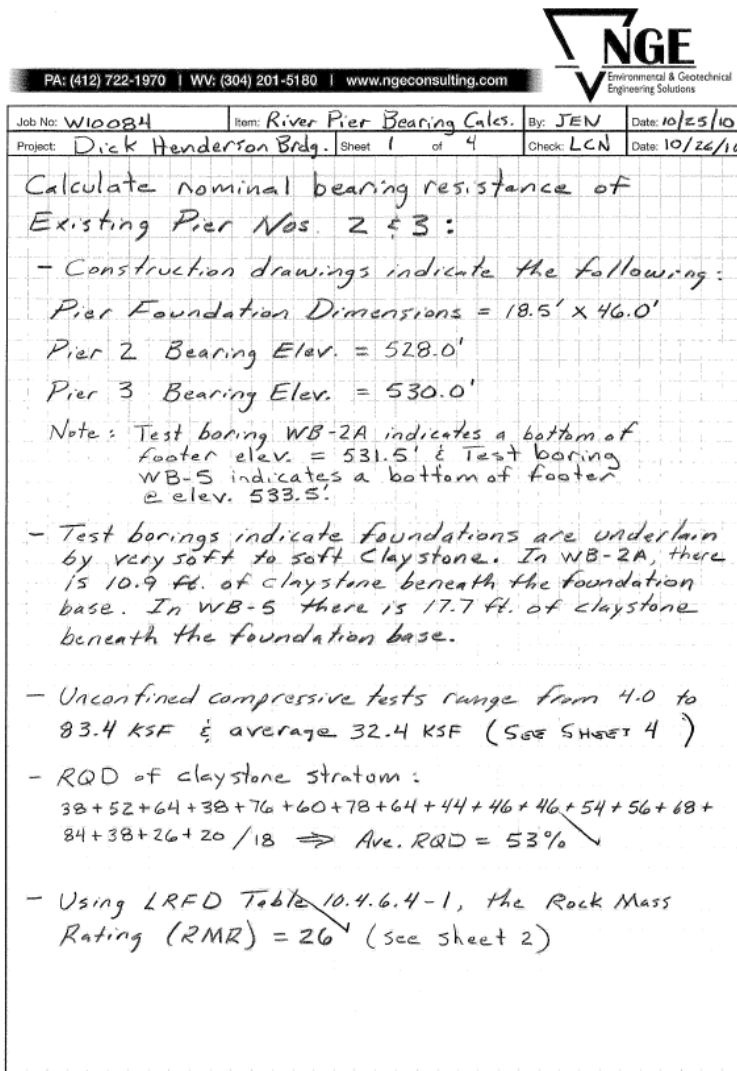 NGE
Environmental & Geotechnical
Engineering Solutions
PA: (412) 722-1970 | WV: (304) 201-5180 | www.ngeconsulting.com
Job No: W10084 Item: River Pier Bearing Calcs. By: JEN Date: 10/25/10
Project: Dick Henderson Brdg. Sheet 1 of 4 Check: LCN Date: 10/26/10
Calculate nominal bearing resistance of
Existing Pier Nos. 2 & 3:
- Construction drawings indicate the following:
Pier Foundation Dimensions = 18.5' X 46.0'
Pier 2 Bearing Elev. = 528.0'
Pier 3 Bearing Elev. = 530.0'
Note: Test boring WB-2A indicates a bottom of
footer elev. = 531.5' & Test boring
WB-5 indicates a bottom of footer
@ elev. 533.5'.
- Test borings indicate foundations are underlain
by very soft to soft Claystone. In WB-2A, there
is 10.9 ft. of claystone beneath the foundation
base. In WB-5 there is 17.7 ft. of claystone
beneath the foundation base.
- Unconfined compressive tests range from 4.0 to
83.4 KSF & average 32.4 KSF (SEE SHEET 4)
- RQD of claystone stratum:
38+52+64+38+76+60+78+64+44+46+46+54+56+68+
84+38+26+20/18 ⇒ Ave. RQD = 53%
- Using LRFD Table 10.4.6.4-1, the Rock Mass
Rating (RMR) = 26 (see sheet 2)